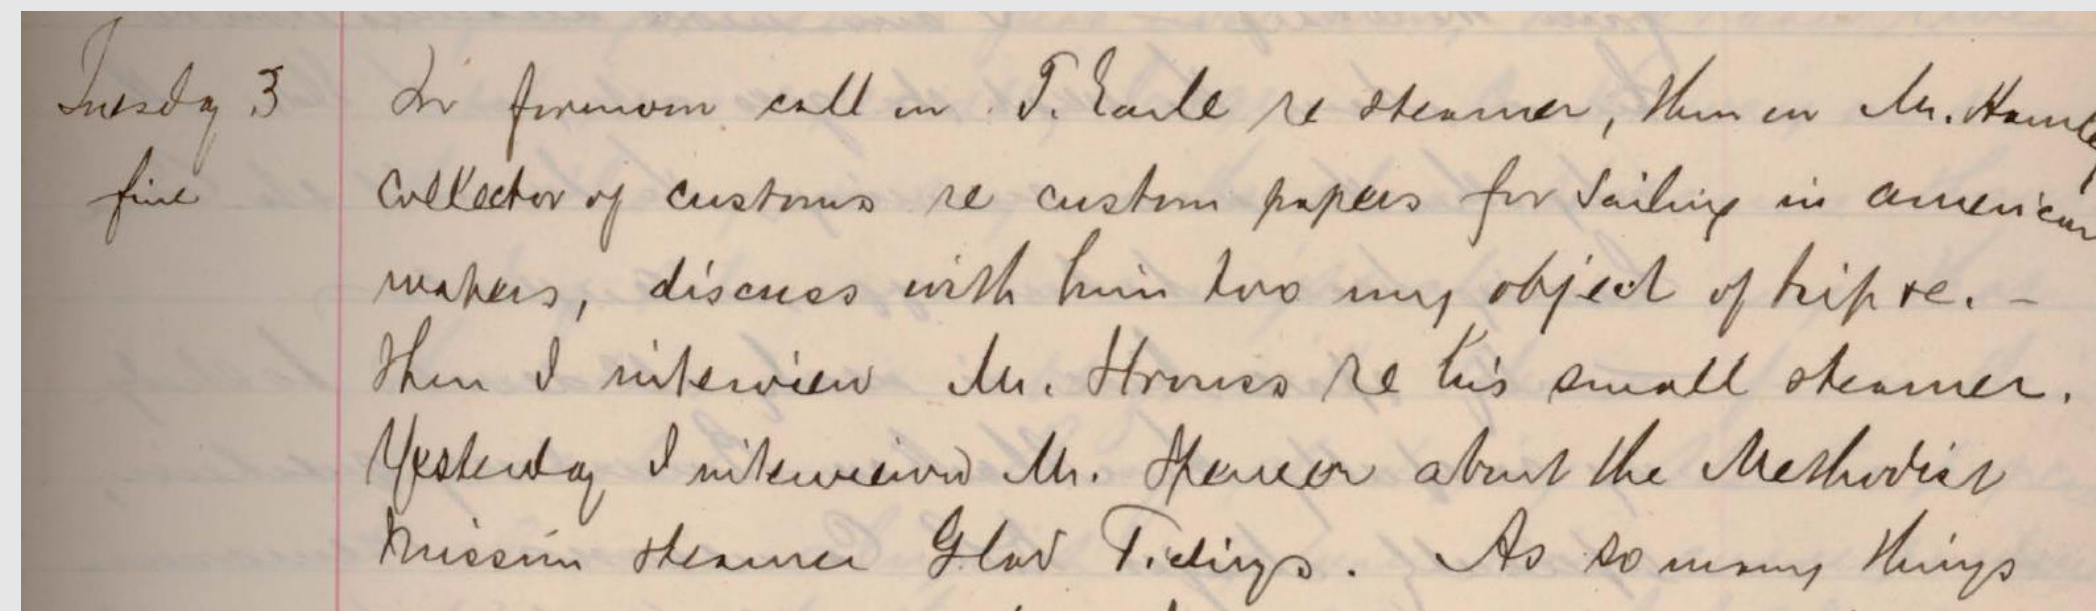 Tuesday 3 In forenoon call on T. Earle re steamer, then on Mr. Hamley
fine Collector of customs re custom papers for sailing in american
waters, discuss with him too my object of trip re. -
Then I interview Mr. Strouss re his small steamer.
Yesterday I interviewed Mr. Spencer about the Methodist
Mission steamer Glad Tidings. As so many things